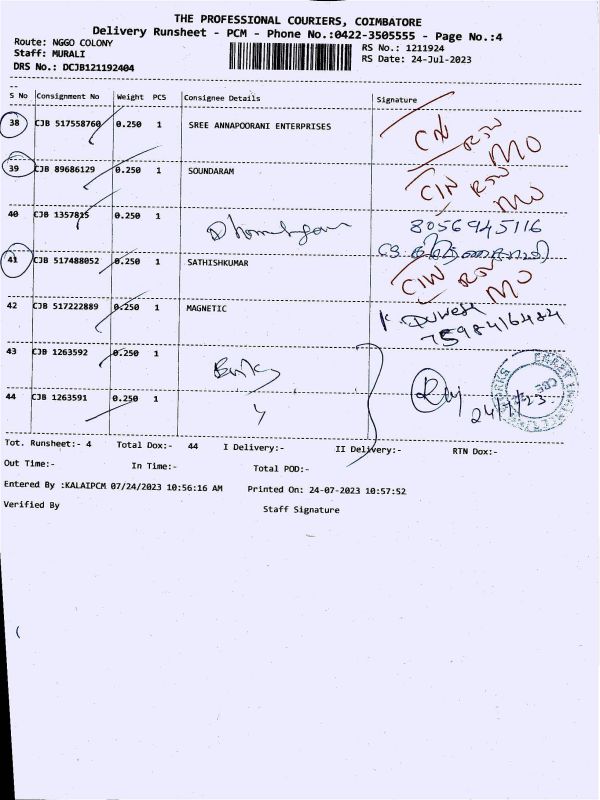 THE PROFESSIONAL COURIERS, COIMBATORE
Delivery Runsheet - PCM - Phone No.:0422-3505555 - Page No.:4
Route: NGGO COLONY RS No.: 1211924
Staff: MURALI RS Date: 24-Jul-2023
DRS No.: DCJB121192404
S No Consignment No Weight PCS Consignee Details Signature
38 CJB 517558760 0.250 1 SREE ANNAPOORANI ENTERPRISES
MO
39 CJB 89686129 0.250 1 SOUNDARAM
MO
40 CJB 1357815 0.250 1 8056945116
41 CJB 517488052 0.250 1 SATHISHKUMAR
MO
42 CJB 517222889 0.250 1 MAGNETIC
7598416484
43 CJB 1263592 0.250 1
44 CJB 1263591 0.250 1 24/7/23
Tot. Runsheet:- 4 Total Dox:- 44 I Delivery:- II Delivery:- RTN Dox:-
Out Time:- In Time:- Total POD:-
Entered By :KALAIPCM 07/24/2023 10:56:16 AM Printed On: 24-07-2023 10:57:52
Verified By Staff Signature